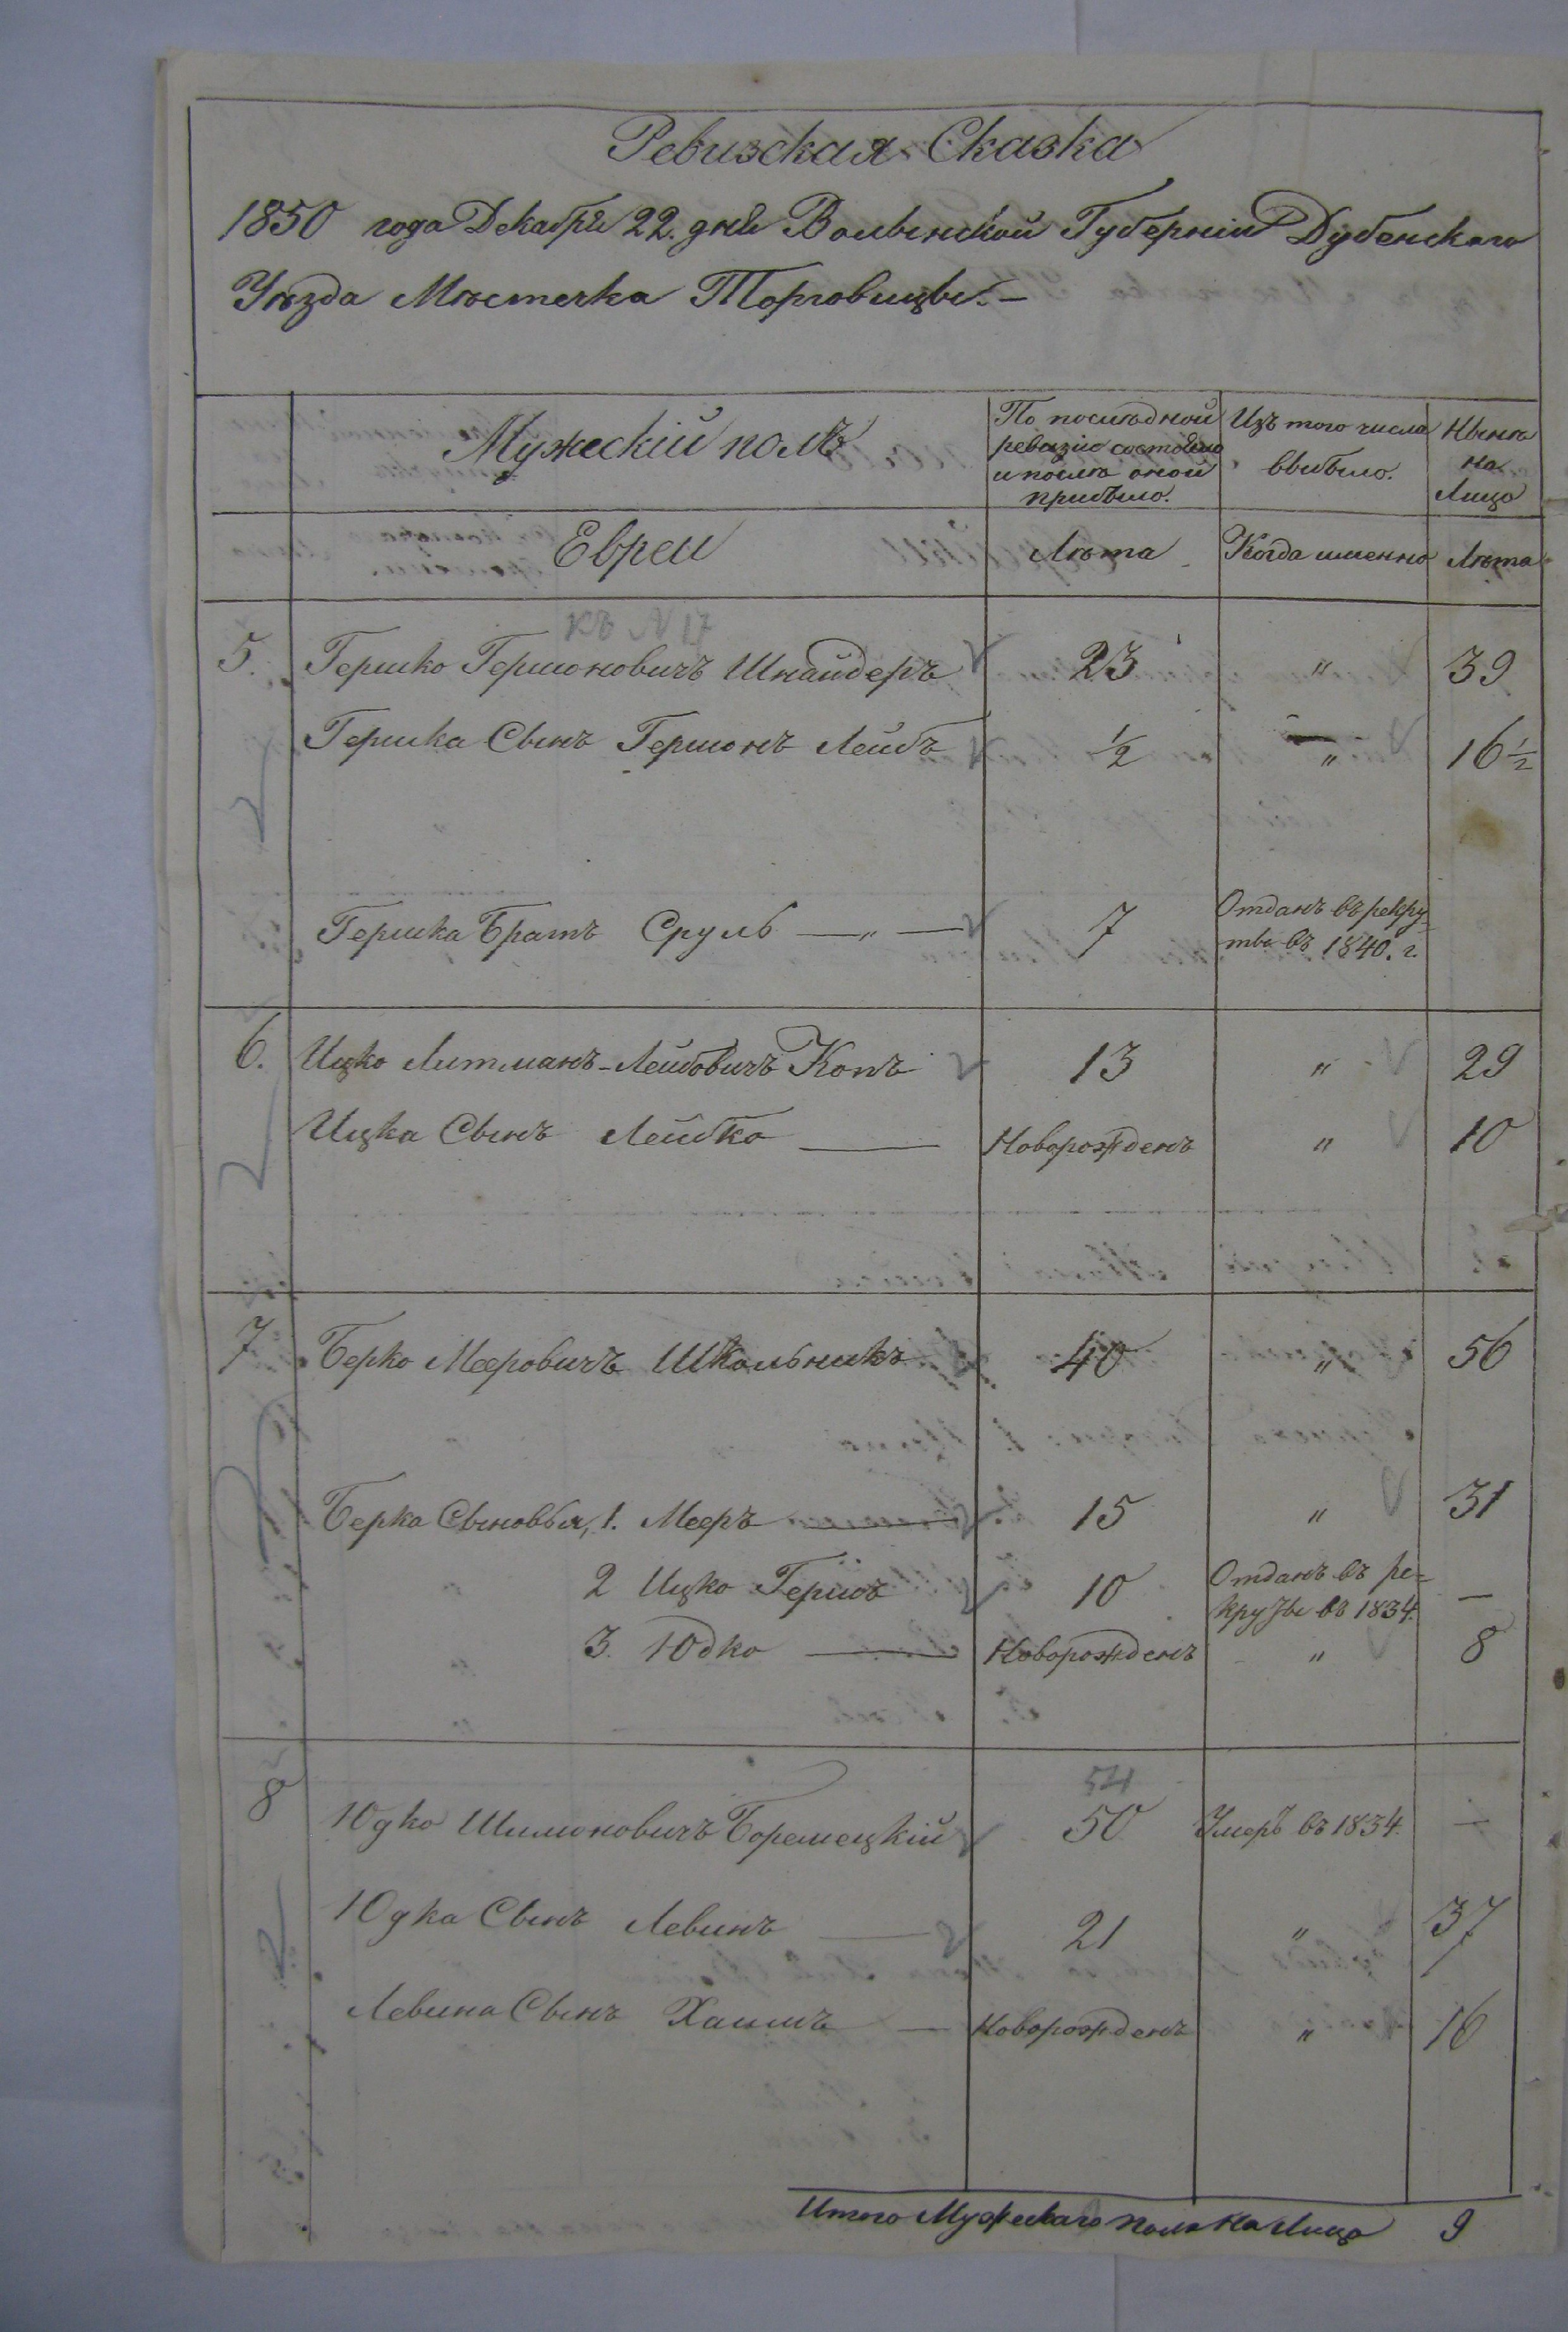 Ревизская Сказка
1850 года Декабря 22. дня Волынской Губерніи Дубенскаго
Уѣзда Мѣстечка Торговицы.–
Мужескій полъ
По послѣдной
ревизіи состояло
и послѣ оной
прибыло.
Изъ того числа
выбыло.
Нынѣ
на
Лицо
Евреи
Лѣта
Когда именно
Лѣта
къ N 17
5. Гершко Гершоновичъ Шнайдеръ 23 " 39
Гершка Сынъ Гершонъ Лейбъ ½ " 16½
Гершка Братъ Сруль —"— 7 Отданъ въ рекру-
ты въ 1840. г.
6. Ицко Литманъ-Лейбовичъ Копъ 13 " 29
Ицка Сынъ Лейбко — Новорожденъ " 10
7 Берко Мееровичъ Школьникъ 40 " 56
Берка Сыновья, 1. Мееръ — 15 " 31
2 Ицко Гершъ 10 Отданъ въ ре-
круты въ 1834. —
3. Юдко — Новорожденъ " 8
54
8 Юдко Шимоновичъ Боремецкій 50 Умеръ въ 1834. —
Юдка Сынъ Левинъ — 21 " 37
Левина Сынъ Хаимъ — Новорожденъ " 16
Итого Мужескаго пола на Лицо 9